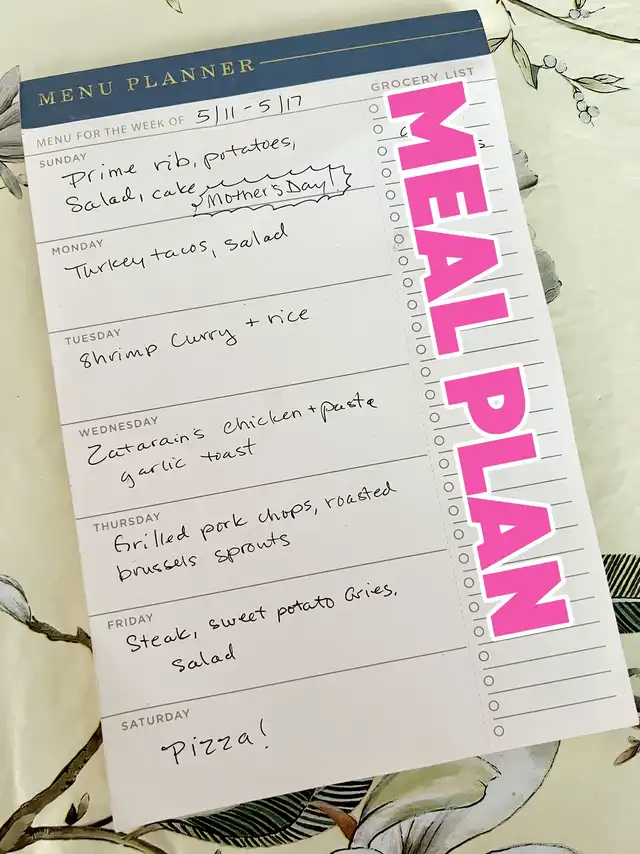 MENU PLANNER
MENU FOR THE WEEK OF 5/11 - 5/17
GROCERY LIST
SUNDAY
Prime rib, potatoes,
Salad, cake
Mother's Day!
MONDAY
Turkey tacos, salad
TUESDAY
Shrimp Curry + rice
WEDNESDAY
Zatarain's chicken + pasta
garlic toast
THURSDAY
Grilled pork chops, roasted
brussels sprouts
FRIDAY
Steak, sweet potato fries,
Salad
SATURDAY
Pizza!
MEAL PLAN